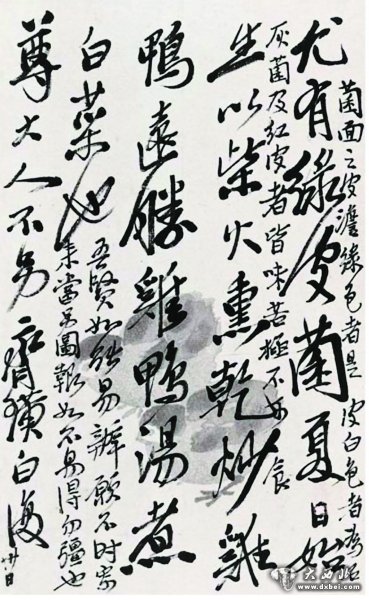 尤有綠皮菌夏日始
菌面之皮澹綠色者是 皮白色者為石
灰菌及紅皮者皆味苦極不要食
生以柴火熏乾炒雞
鴨遠勝雞鴨湯煮
白菜也
吾賢如能易辦願不時寄
來當另圖報如不易得勿彊也
尊大人不另 齊璜白 復
廿日
大西北
www.dxbei.com